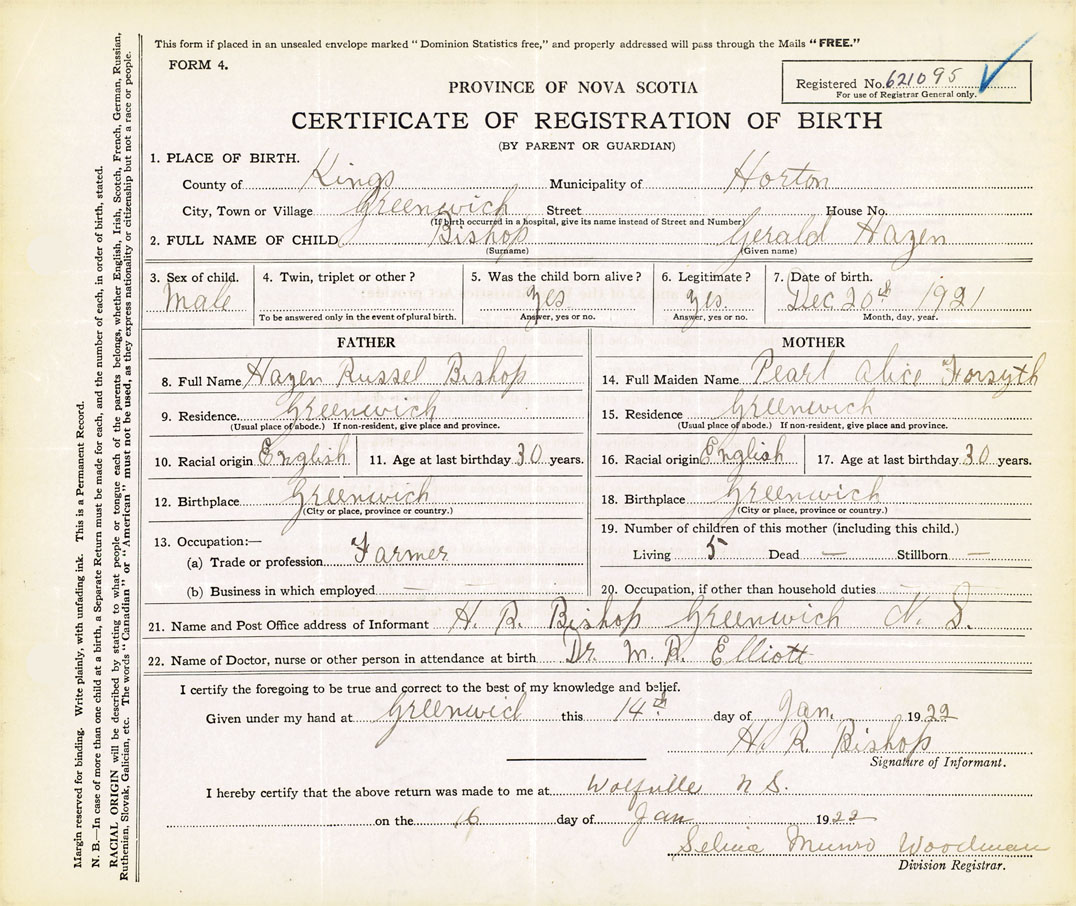 This form if placed in an unsealed envelope marked "Dominion Statistics free," and properly addressed will pass through the Mails "FREE."
FORM 4.
Registered No. 621095
For use of Registrar General only.
PROVINCE OF NOVA SCOTIA
CERTIFICATE OF REGISTRATION OF BIRTH
(BY PARENT OR GUARDIAN)
1. PLACE OF BIRTH.
County of Kings Municipality of Horton
City, Town or Village Greenwich Street House No.
(If birth occurred in a hospital, give its name instead of Street and Number)
2. FULL NAME OF CHILD Bishop Gerald Hazen
(Surname) (Given name)
3. Sex of child. 4. Twin, triplet or other? 5. Was the child born alive? 6. Legitimate? 7. Date of birth.
Male yes yes. Dec 20th 1921
To be answered only in the event of plural birth. Answer, yes or no. Answer, yes or no. Month, day, year.
FATHER
8. Full Name Hazen Russel Bishop
9. Residence. Greenwich
(Usual place of abode.) If non-resident, give place and province.
10. Racial origin English 11. Age at last birthday 30 years.
12. Birthplace Greenwich
(City or place, province or country.)
13. Occupation:—
(a) Trade or profession Farmer
(b) Business in which employed —
MOTHER
14. Full Maiden Name Pearl Alice Forsyth
15. Residence Greenwich
(Usual place of abode.) If non-resident, give place and province.
16. Racial origin English 17. Age at last birthday 30 years.
18. Birthplace Greenwich
(City or place, province or country.)
19. Number of children of this mother (including this child.)
Living 5 Dead — Stillborn —
20. Occupation, if other than household duties —
21. Name and Post Office address of Informant H. R. Bishop Greenwich N. S.
22. Name of Doctor, nurse or other person in attendance at birth Dr. M. R. Elliott
I certify the foregoing to be true and correct to the best of my knowledge and belief.
Given under my hand at Greenwich this 14th day of Jan. 1922
H. R. Bishop
Signature of Informant.
I hereby certify that the above return was made to me at Wolfville N S.
on the 16 day of Jan 1922
Selina Munro Woodman
Division Registrar.
Margin reserved for binding. Write plainly, with unfading ink. This is a Permanent Record.
N. B.—In case of more than one child at a birth, a Separate Return must be made for each, and the number of each, in order of birth, stated.
RACIAL ORIGIN will be described by stating to what people or tongue each of the parents belongs, whether English, Irish, Scotch, French, German, Russian,
Ruthenian, Slovak, Galician, etc. The words "Canadian" or "American" must not be used, as they express nationality or citizenship but not a race or people.